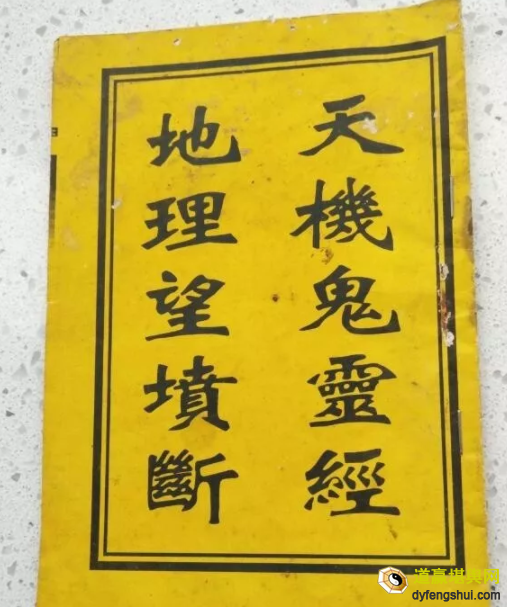 天機鬼靈經
地理望墳斷
道亨堪輿网
dyfengshui.com